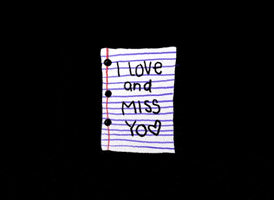 I LOVE
and
MISS
YO♡